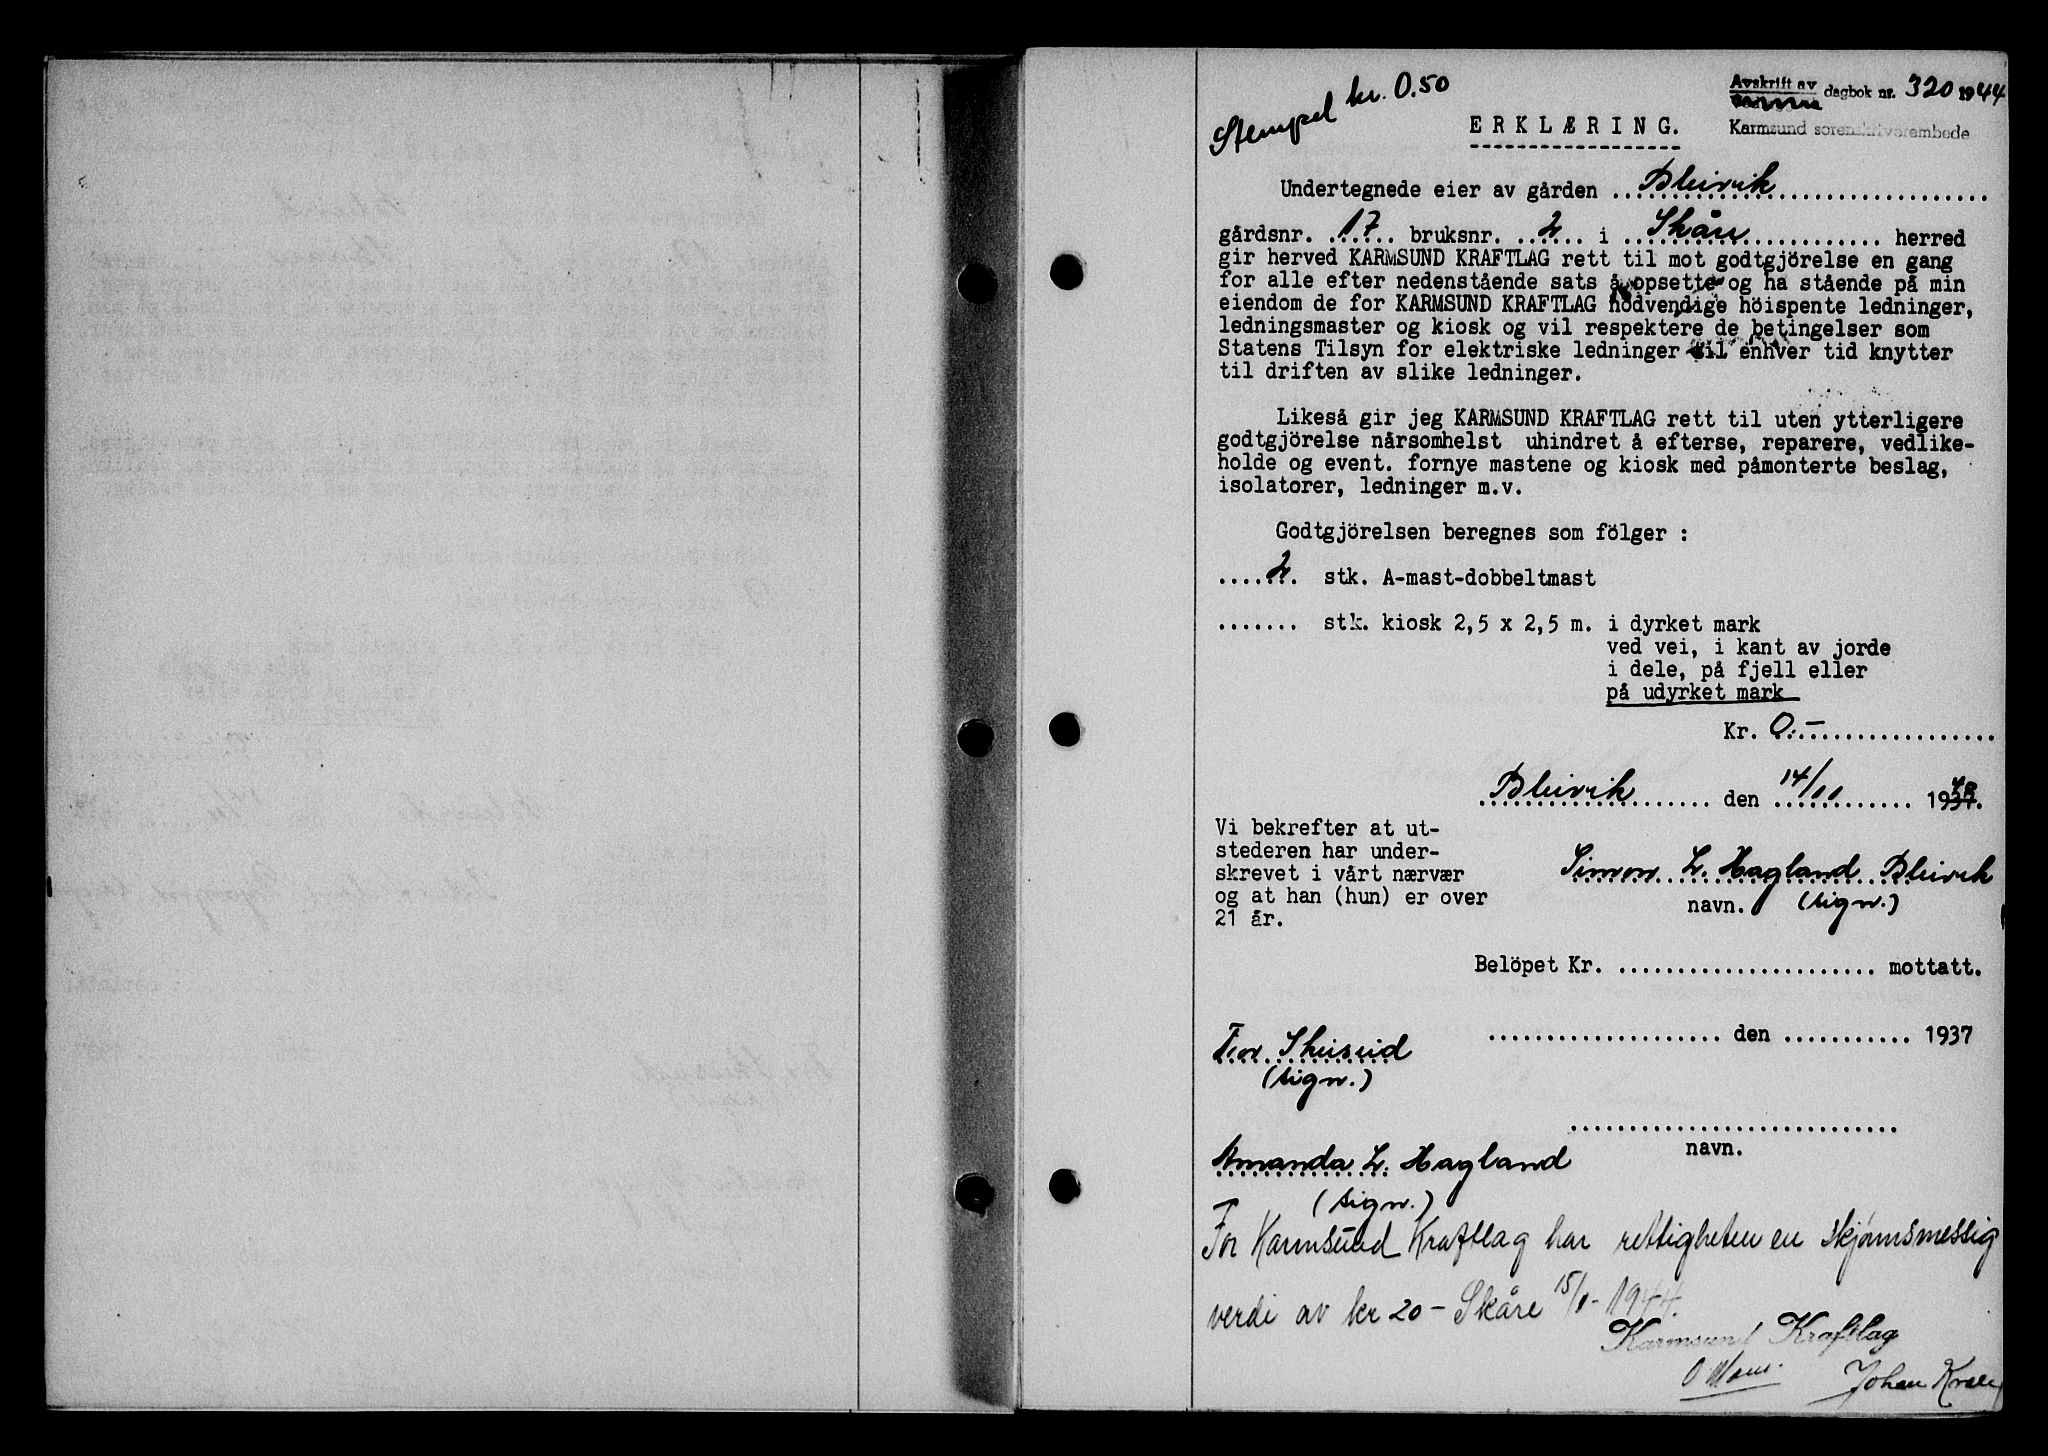 Stempel kr. 0.50
Avskrift av
dagbok nr. 320 1944
Karmsund sorenskriverembede
ERKLÆRING.
Undertegnede eier av gården Bleivik
gårdsnr. 17 bruksnr. 2 i Skåre herred
gir herved KARMSUND KRAFTLAG rett til mot godtgjörelse en gang
for alle efter nedenstående sats å opsette og ha stående på min
eiendom de for KARMSUND KRAFTLAG nödvendige höispente ledninger,
ledningsmaster og kiosk og vil respektere de betingelser som
Statens Tilsyn for elektriske ledninger til enhver tid knytter
til driften av slike ledninger.
Likeså gir jeg KARMSUND KRAFTLAG rett til uten ytterligere
godtgjörelse nårsomhelst uhindret å efterse, reparere, vedlike-
holde og event. fornye mastene og kiosk med påmonterte beslag,
isolatorer, ledninger m.v.
Godtgjörelsen beregnes som fölger :
2 stk. A-mast-dobbeltmast
....... stk. kiosk 2,5 x 2,5 m. i dyrket mark
ved vei, i kant av jorde
i dele, på fjell eller
på udyrket mark
Kr. 0.-
Bleivik den 14/11 19
Vi bekrefter at ut-
stederen har under-
skrevet i vårt nærvær
og at han (hun) er over
21 år.
Simon L. Hagland Bleivik
navn. (sign.)
Belöpet Kr. ...................... mottatt.
.................... den ........... 1937
(sign.)
............................
navn.
Amanda L. Hagland
(sign.)
For Karmsund Kraftlag har rettigheten en skjønnsmessig
verdi av kr 20 - Skåre 15/1 - 1944.
Karmsund Kraftlag
Johan